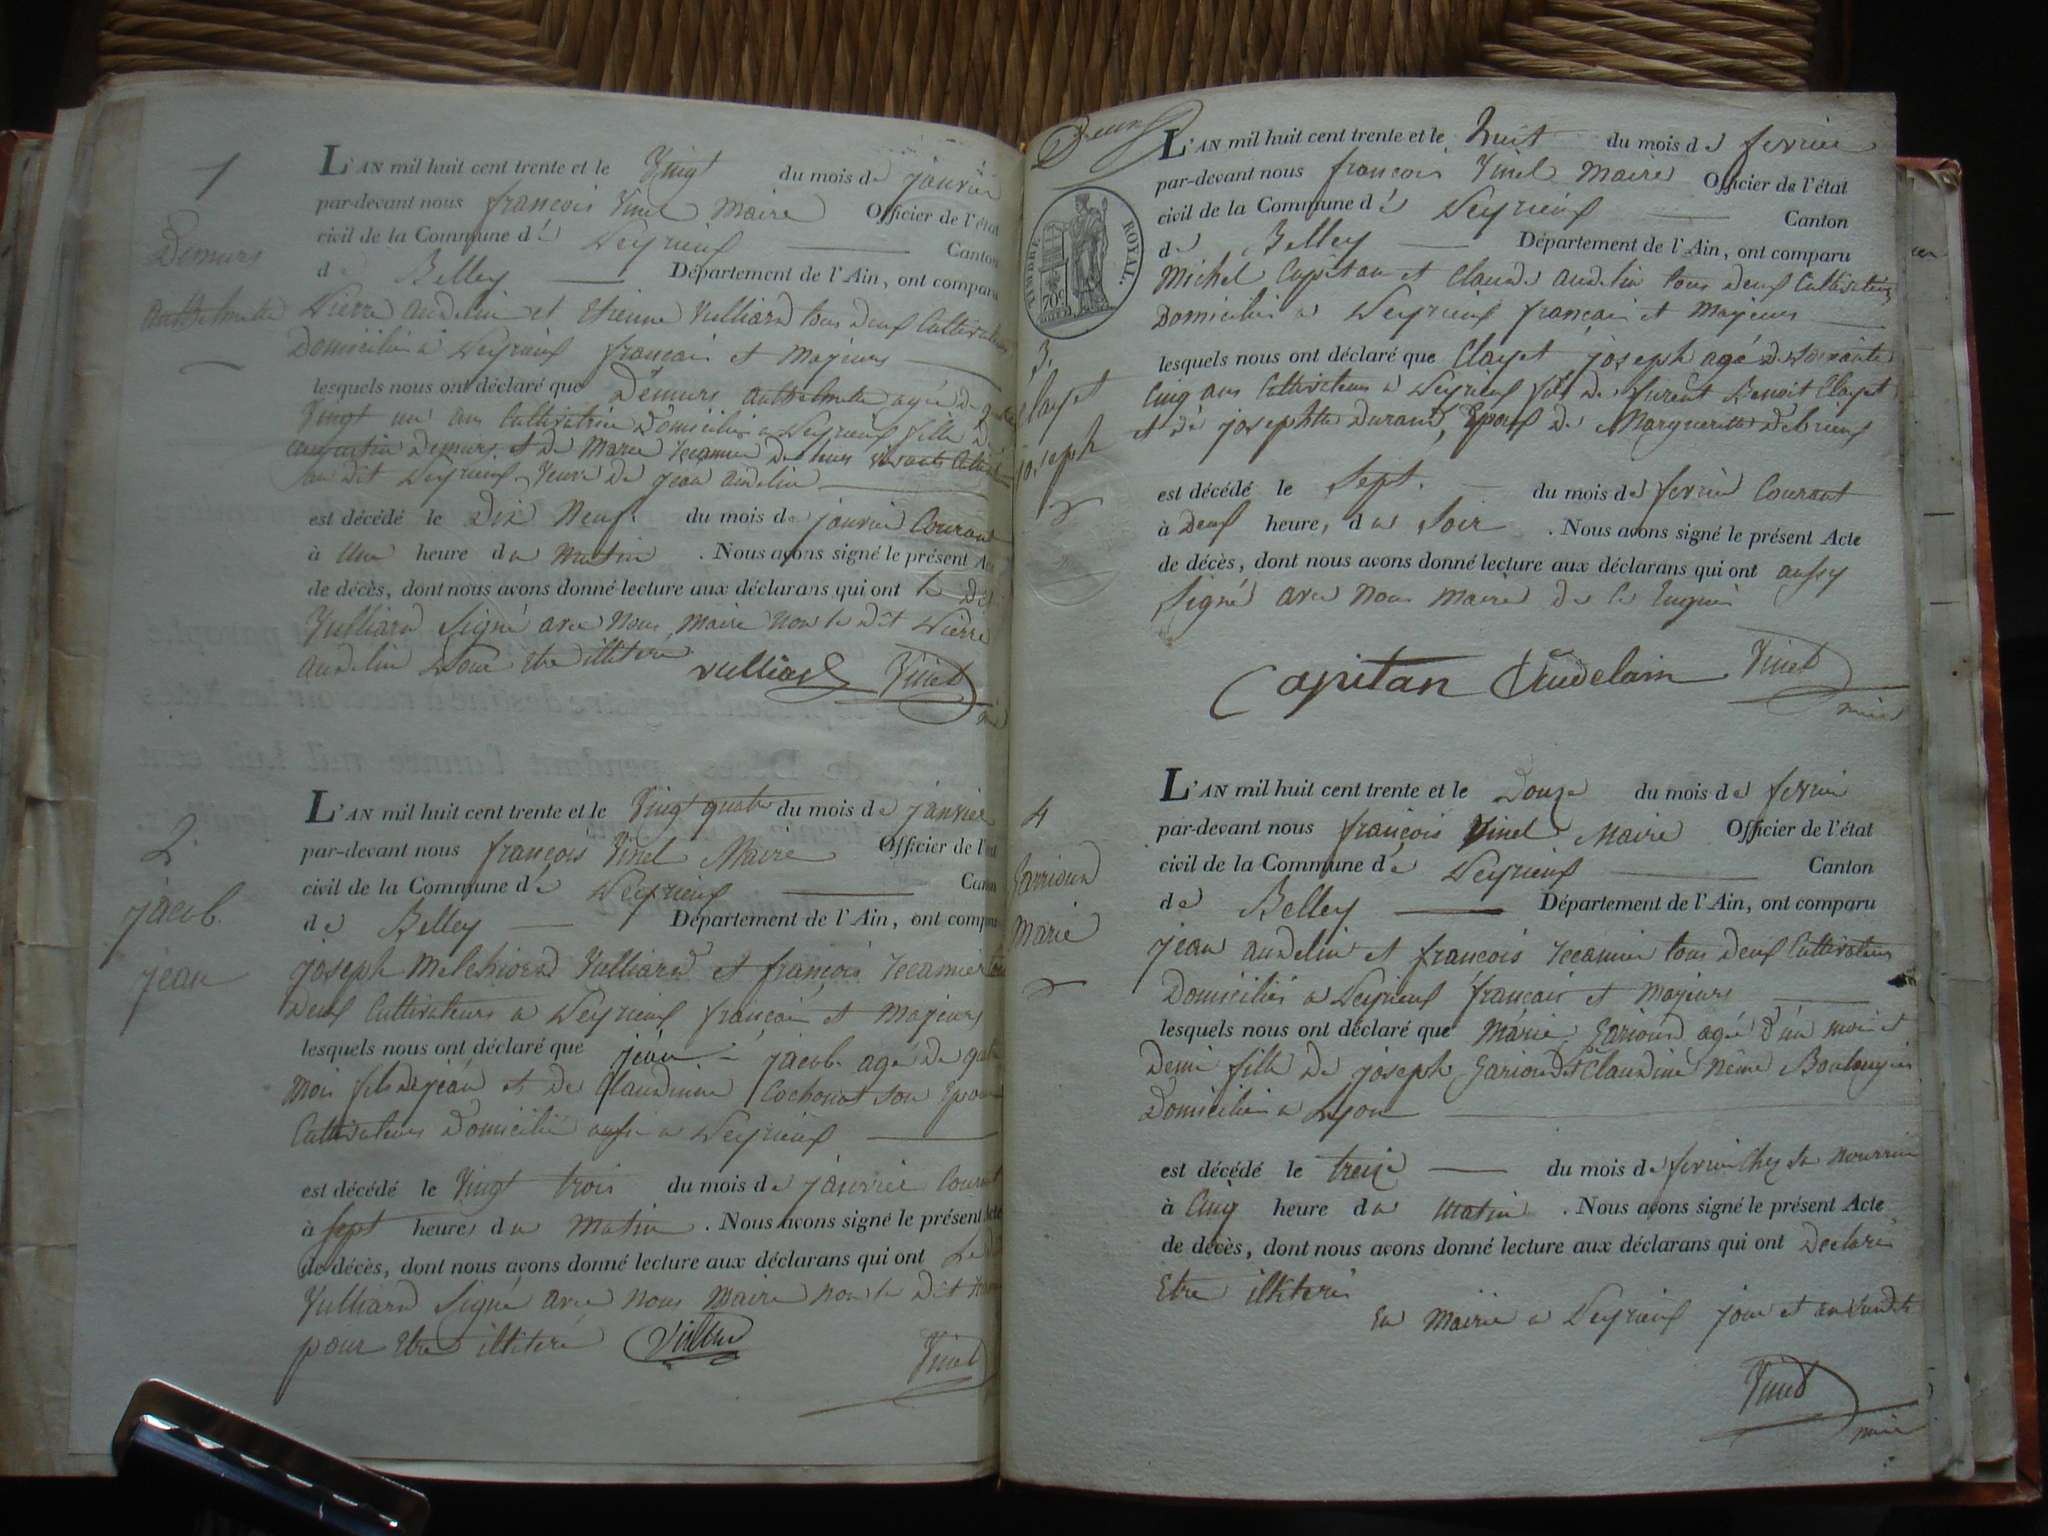 1
Demurs
Anthelmette
L'AN mil huit cent trente et le Vingt du mois de janvier
par-devant nous françois Vinel Maire Officier de l'état
civil de la Commune de Peyrieux Canton
de Belley Département de l'Ain, ont comparu
Pierre andelin et Etienne Vulliard tous deux Cultivateurs
Domiciliés a Peyrieux francais et Majeurs
lesquels nous ont déclaré que Demurs anthelmette agée de quatre
Vingt un ans Cultivatrice Domiciliée a Peyrieux fille de
Demurs et de Marie Jecamier
au dit Peyrieux Veuve de jean andelin
est décédé le Dix Neuf du mois de janvier Courant
à Une heure du Matin . Nous avons signé le présent Acte
de décès, dont nous avons donné lecture aux déclarans qui ont le dit
Vulliard Signé avec Nous Maire non le Dit Pierre
andelin Pour Etre illiteré
Vulliard Vinel
2
jacob
jean
L'AN mil huit cent trente et le Vingt quatre du mois de janvier
par-devant nous françois Vinel Maire Officier de l'état
civil de la Commune de Peyrieux Canton
de Belley Département de l'Ain, ont comparu
joseph Melchiord Vulliard et françois Jecamier tous
Deux Cultivateurs a Peyrieux francais et Majeurs
lesquels nous ont déclaré que jean jacob agé de quatre
Mois fils de jean et de Claudine Cochonat son Epouse
Cultivateurs Domiciliés aussi a Peyrieux
est décédé le Vingt trois du mois de janvier Courant
à Sept heures du Matin . Nous avons signé le présent Acte
de décès, dont nous avons donné lecture aux déclarans qui ont Le dit
Vulliard Signé avec nous Maire non le Dit
pour Etre illiteré
Vinel
Deux
TIMBRE ROYAL.
70c
3
Clayet
joseph
L'AN mil huit cent trente et le huit du mois de fevrier
par-devant nous francois Vinel Maire Officier de l'état
civil de la Commune de Peyrieux Canton
de Belley Département de l'Ain, ont comparu
Michel Capitan et Claude andelin tous deux Cultivateurs
Domiciliés a Peyrieux francais et Majeurs
lesquels nous ont déclaré que Clayet joseph agé de soixante
Cinq ans Cultivateur a Peyrieux fils de furent Benoit Clayet
et de josephte Durand, Epoux de Marguerite Debrieux
est décédé le Sept du mois de fevrier Courant
à Deux heure, du Soir . Nous avons signé le présent Acte
de décès, dont nous avons donné lecture aux déclarans qui ont aussy
Signé avec Nous Maire de ce Enquis
Capitan Audelain Vinel
Maire
4
Marie
L'AN mil huit cent trente et le Douze du mois de fevrier
par-devant nous françois Vinel Maire Officier de l'état
civil de la Commune de Peyrieux Canton
de Belley Département de l'Ain, ont comparu
jean andelin et francois Jecamier tous deux Cultivateurs
Domiciliés a Peyrieux francais et Majeurs
lesquels nous ont déclaré que Marie Gariond agé d'un mois et
Demi fille de joseph Gariond et Claudine Même Boulangers
Domiciliés a Lyon
est décédé le treize du mois de fevrier Chez Sa nourrice
à Cinq heure du Matin . Nous avons signé le présent Acte
de décès, dont nous avons donné lecture aux déclarans qui ont Declarés
Etre illiterés
En Mairie a Peyrieux jour et an susdits
Vinel
Maire